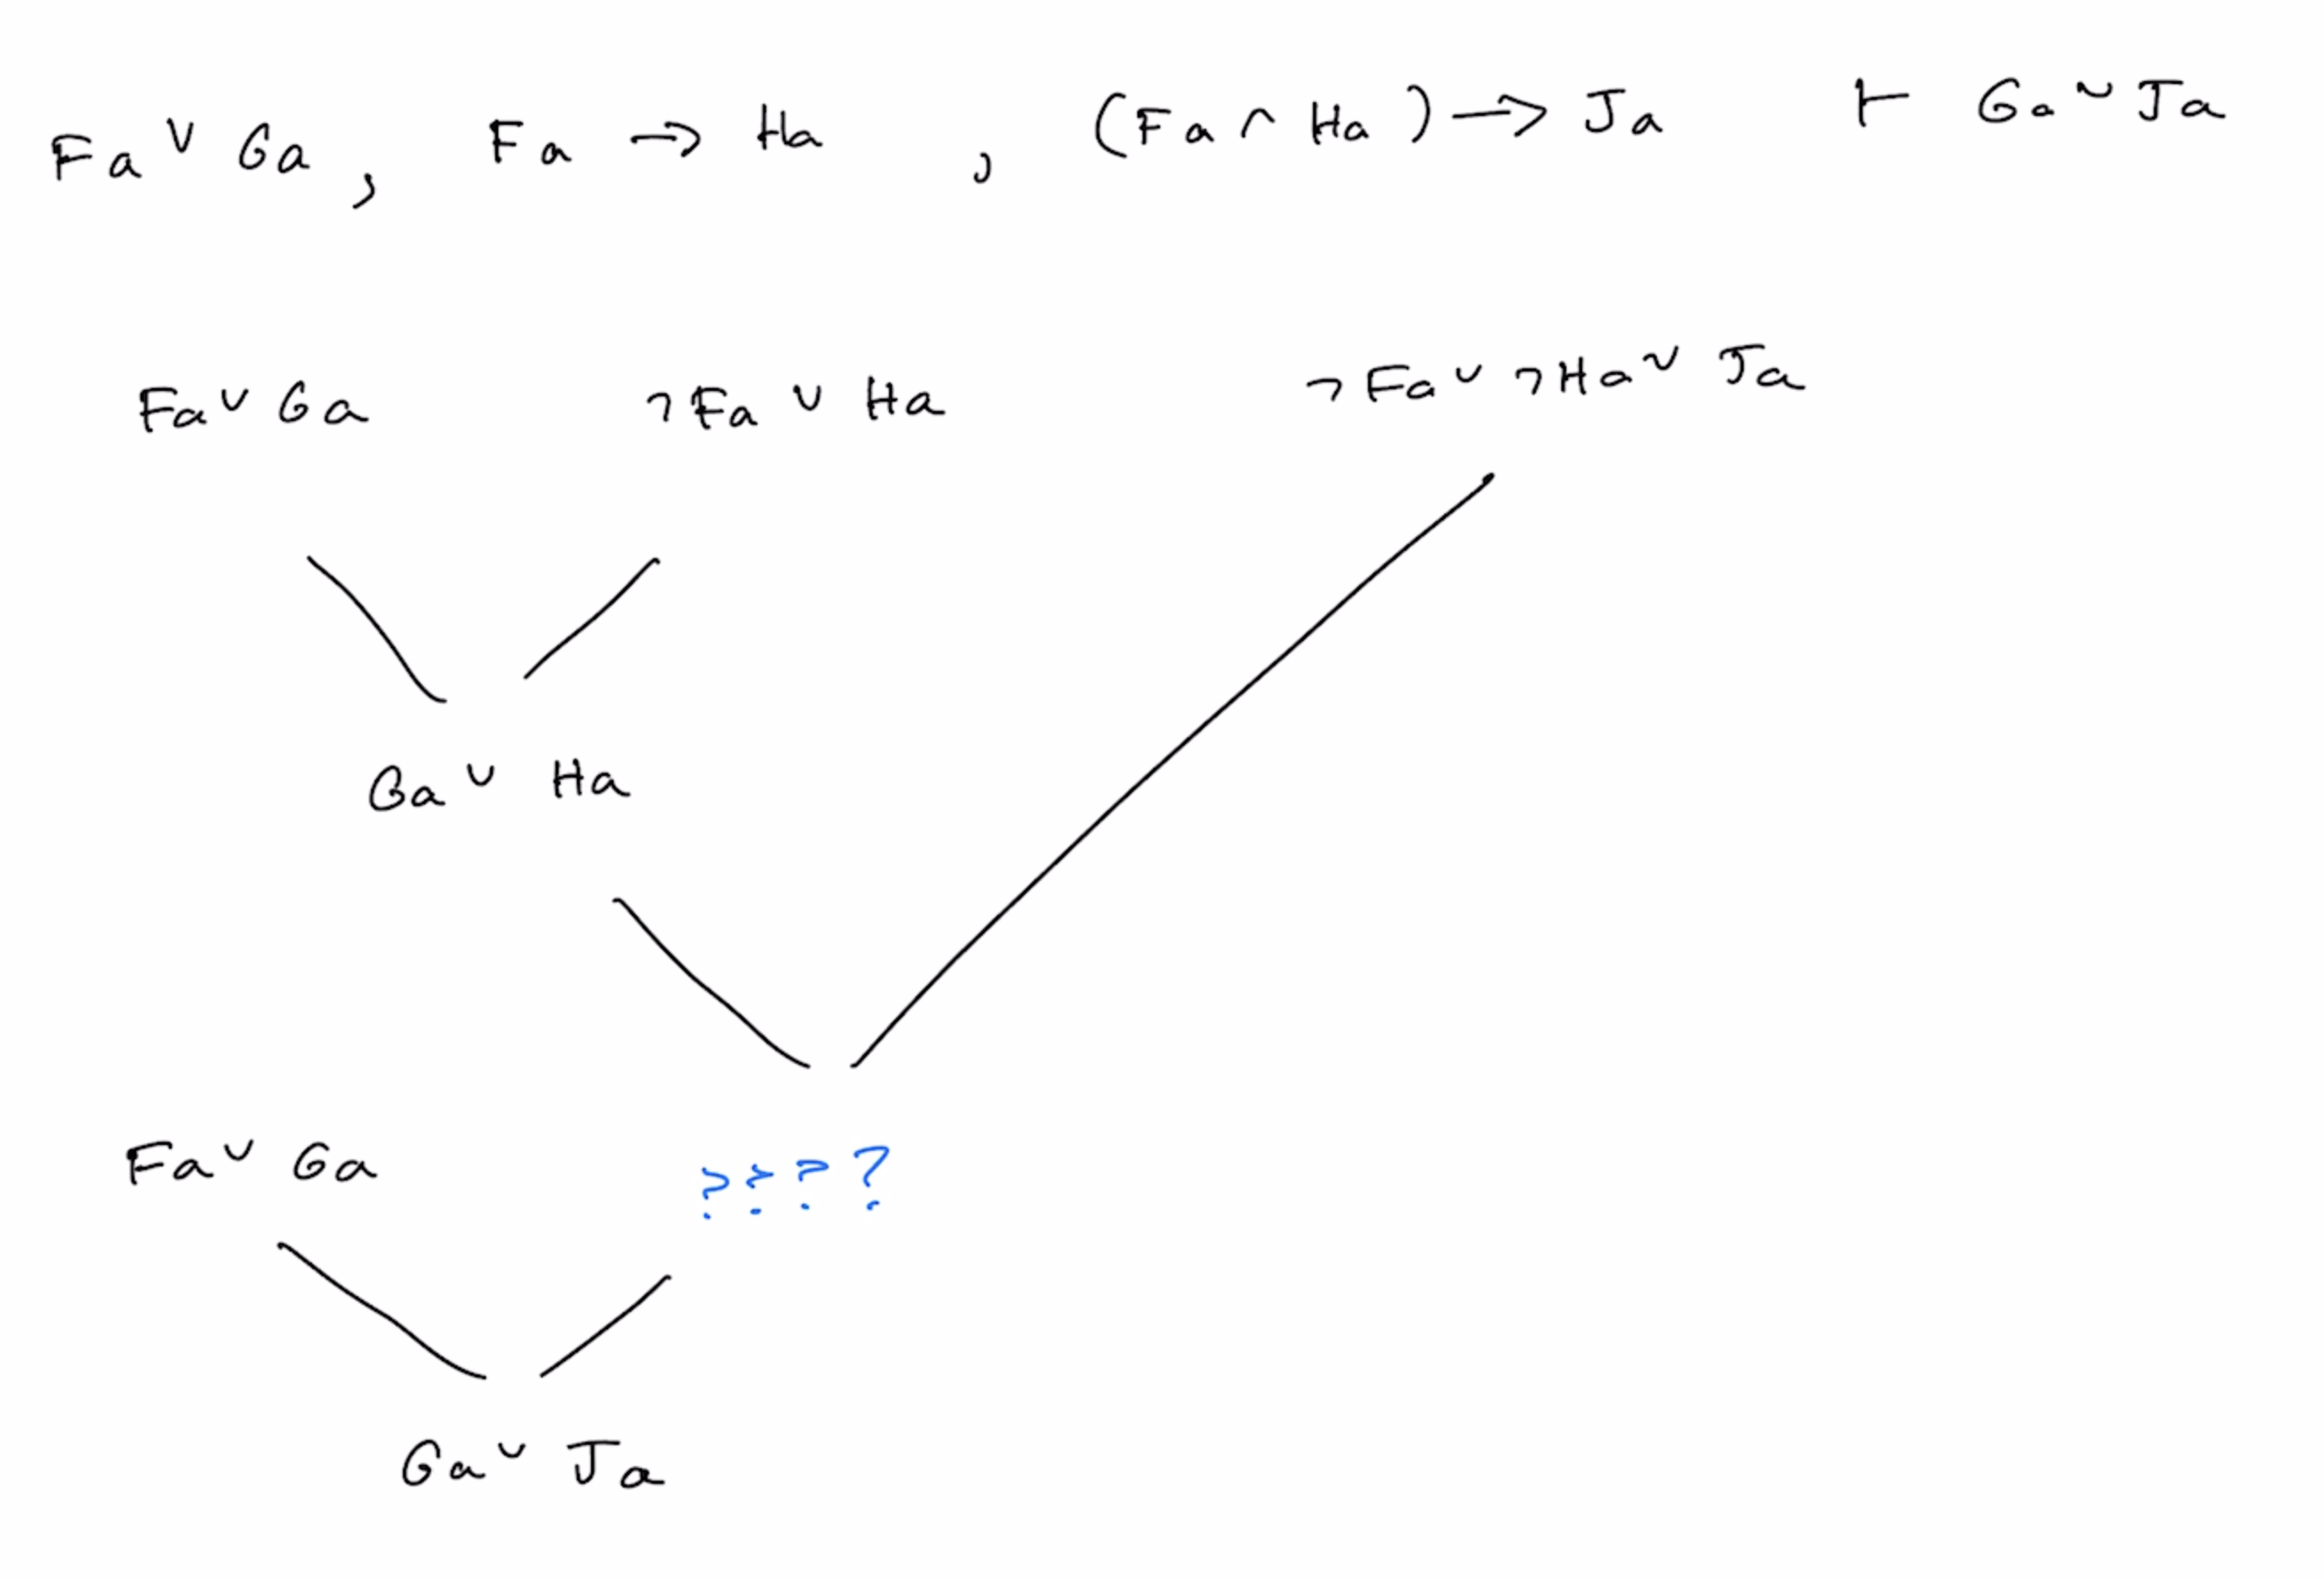 Fa ∨ Ga , Fa → Ha , (Fa ∧ Ha) → Ja ⊢ Ga ∨ Ja
Fa ∨ Ga ¬Fa ∨ Ha ¬Fa ∨ ¬Ha ∨ Ja
Ga ∨ Ha
Fa ∨ Ga ????
Ga ∨ Ja